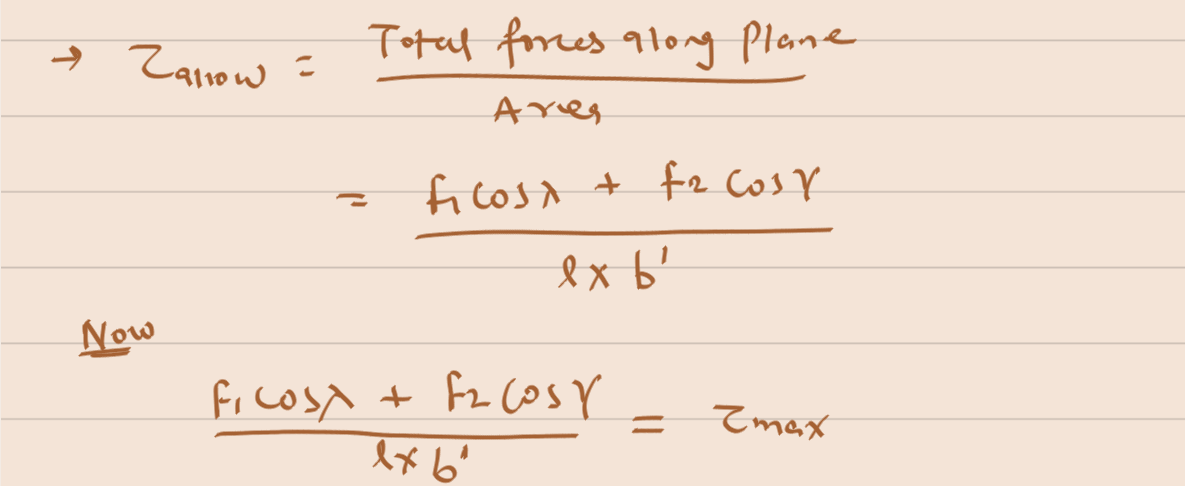 → τallow = Total forces along Plane
Area
= f1 cosλ + f2 cosγ
l x b'
Now
F1 cosλ + F2 cosγ = τmax
l x b'